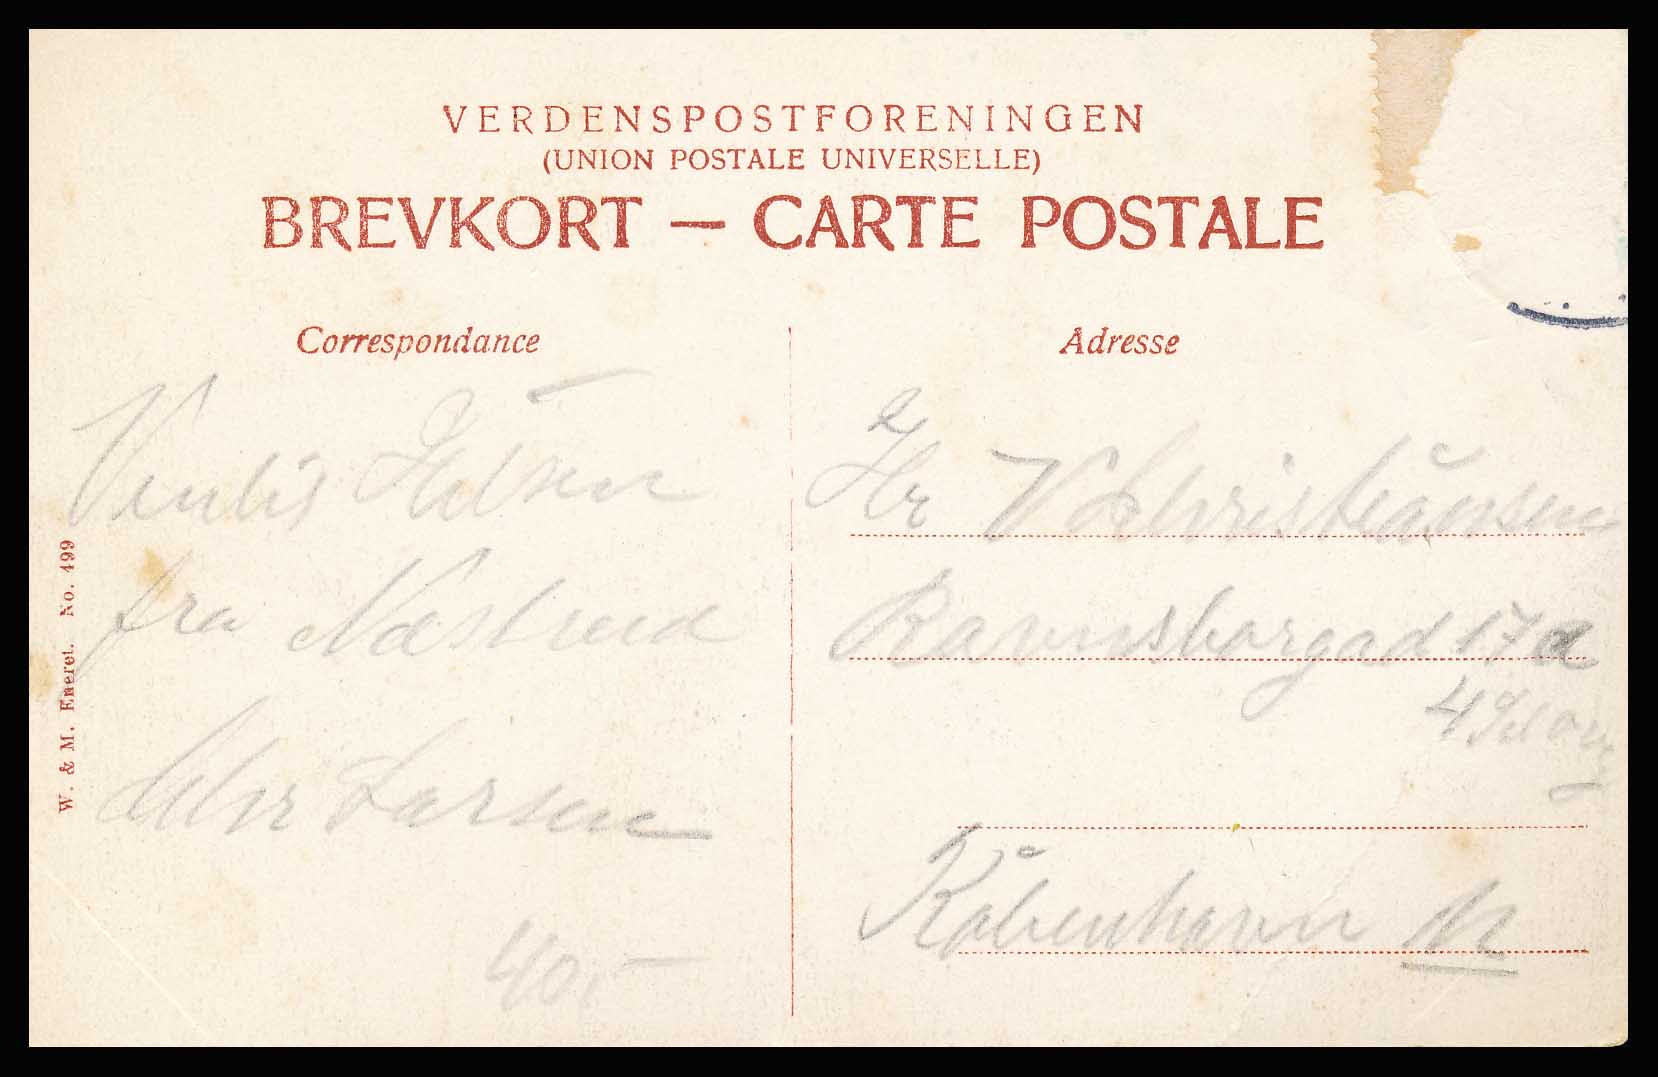 VERDENSPOSTFORENINGEN
(UNION POSTALE UNIVERSELLE)
BREVKORT — CARTE POSTALE
Correspondance
Venlig Hilsen
fra Næstved
Chr Larsen
Adresse
Hr V Christiansen
Ravnsborgad 17
4
København N
W. & M. Eneret. No. 499